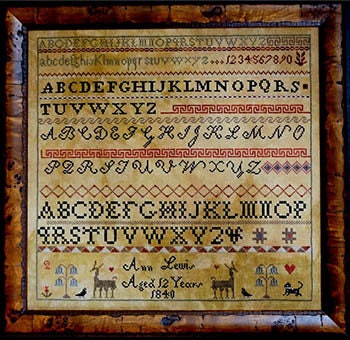 ABCDEFGHIJKLMNOPQRSTUVWXYZ
abcdefghijklmnopqrstuvwxyz 1234567890
ABCDEFGHIJKLMNOPQRS
TUVWXYZ
ABCDEFGHIJKLMNO
PQRSTUVWXYZ
ABCDEFGHIJKLMNOP
QRSTUVWXYZ&
Ann Lewis
Aged 12 Years
1840